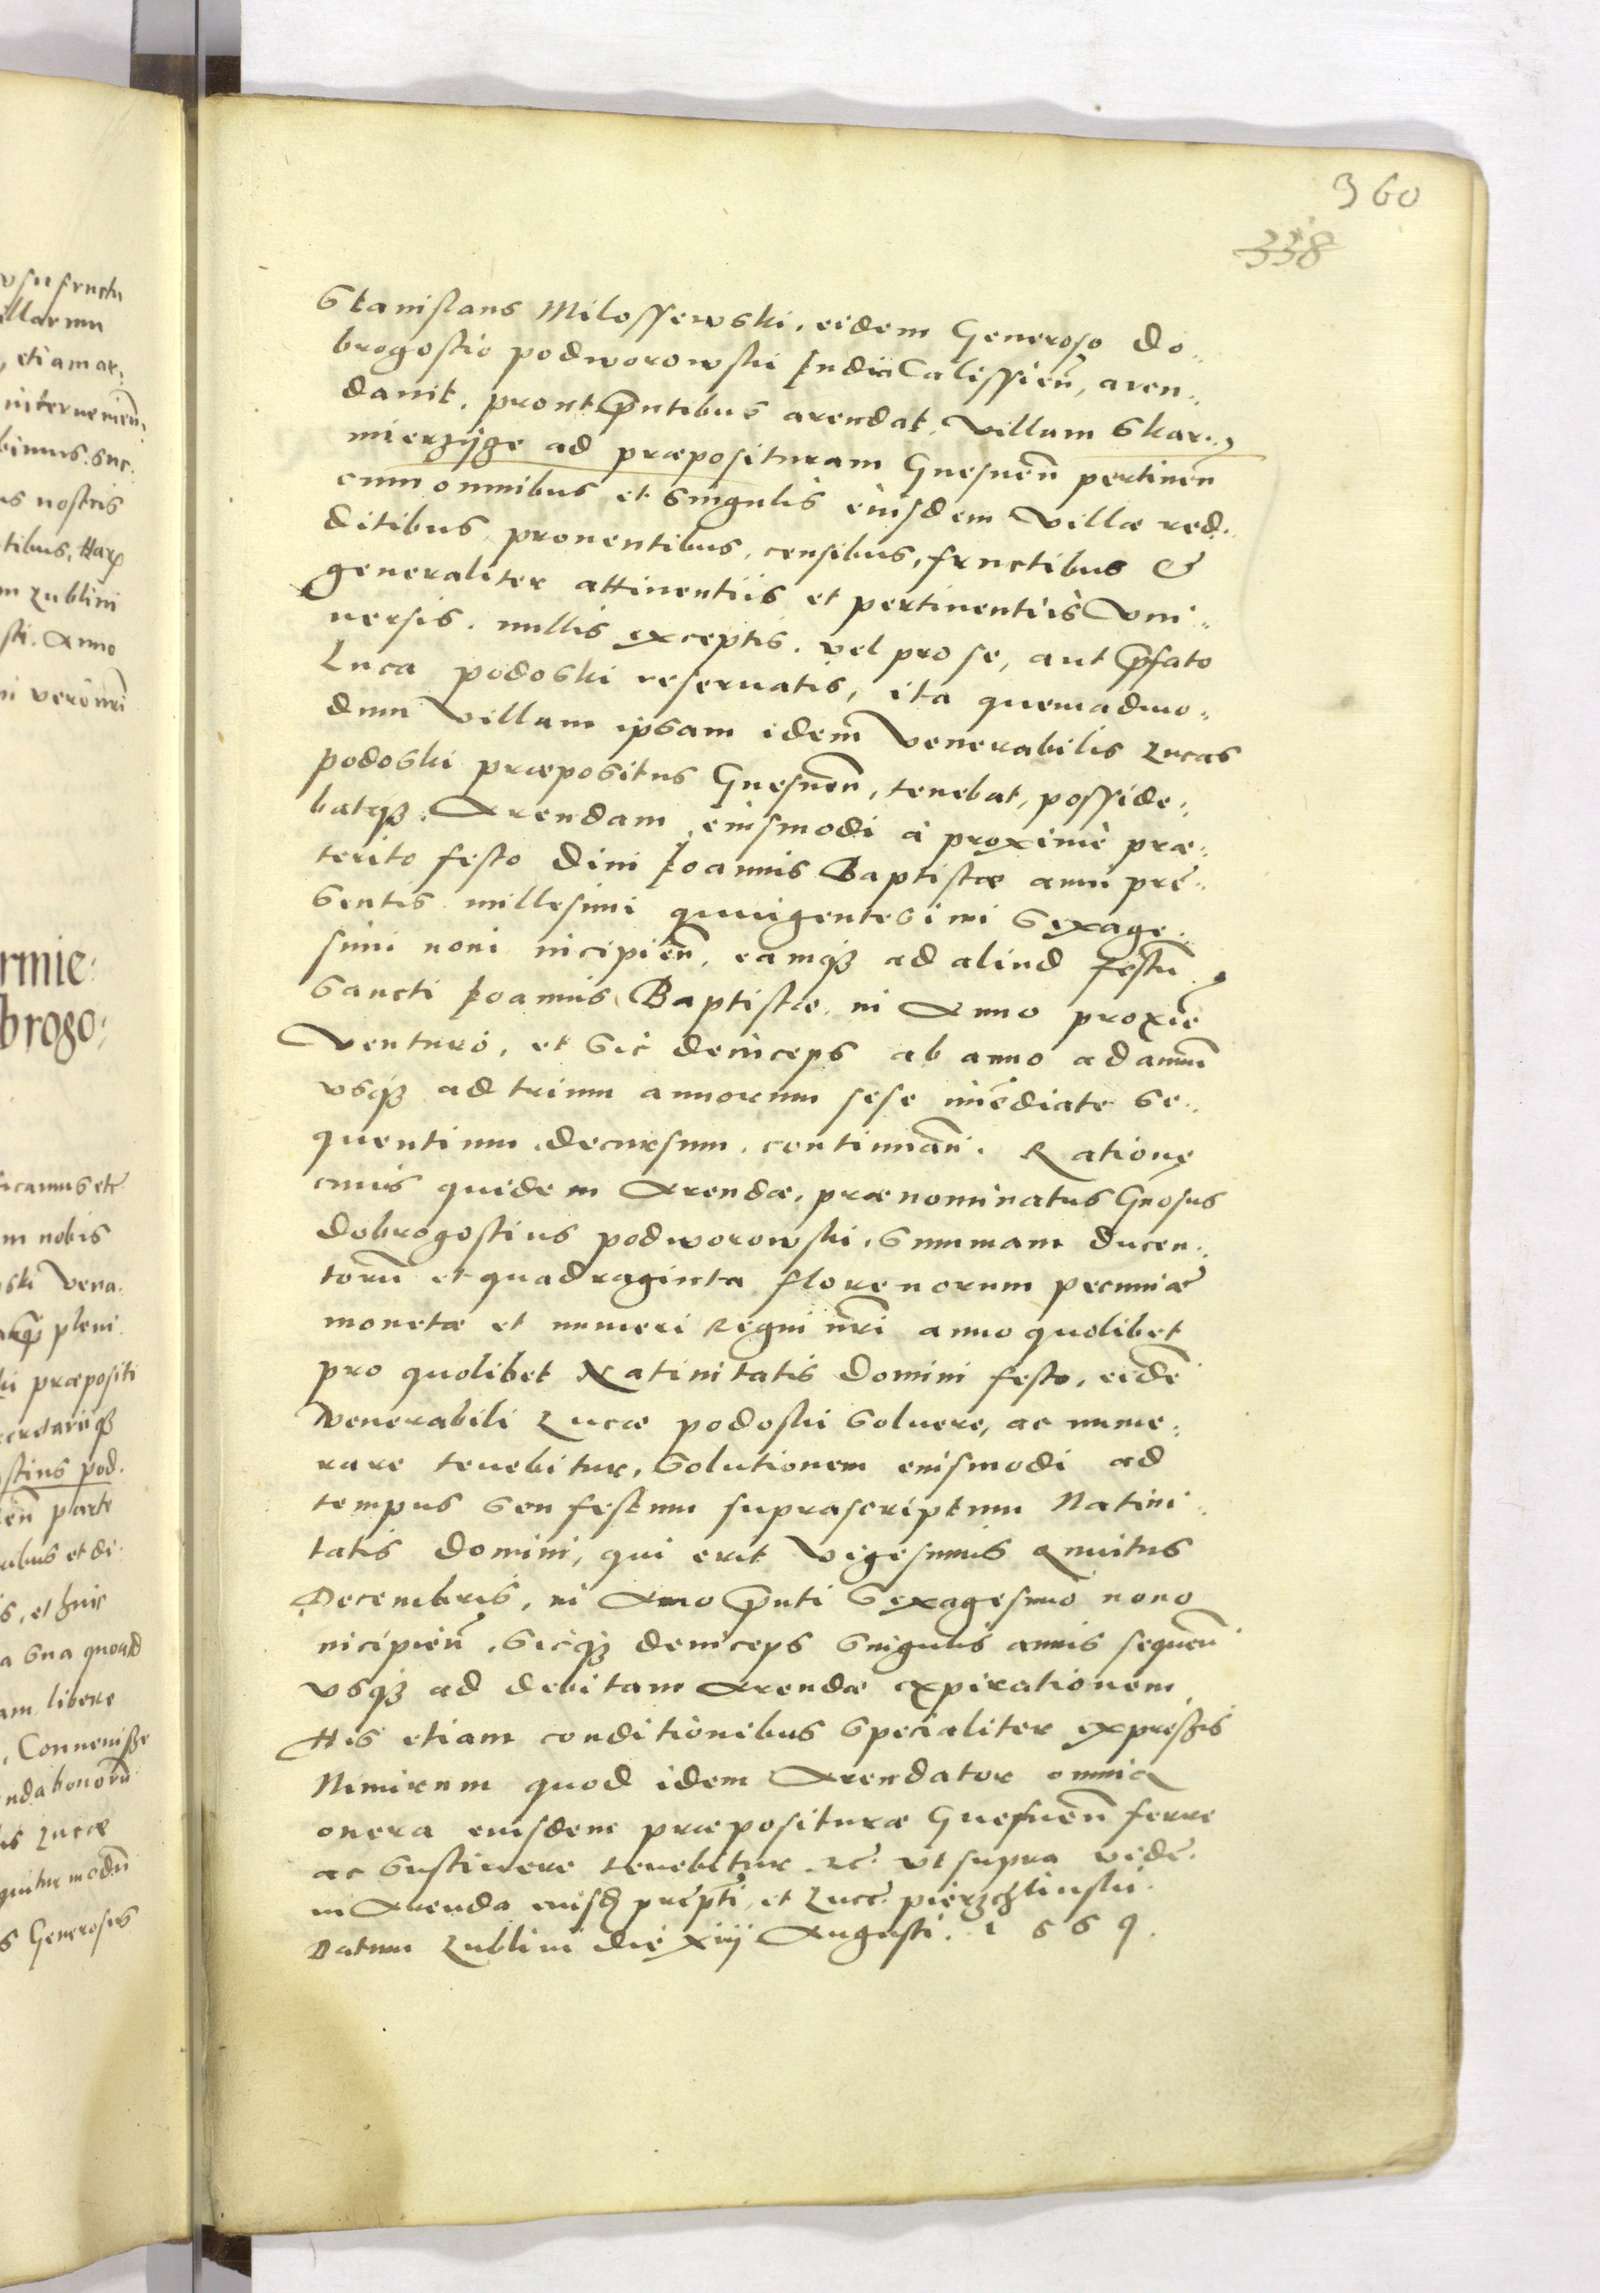 360
338
Stanislaus Milossewski, eidem Generoso Do„
brogostio podworowski Iudici Calissien̄, aren„
dauit, prout p̄ntibus arendat, Villam Skar„
mierzÿze ad præposituram Gnesnen̄ pertinen̄
cum omnibus et singulis eiusdem Villæ red„
ditibus, prouentibus, censibus, fructibus &
generaliter attinentiis et pertinentiis Vni„
uersis, nullis exceptis, vel pro se, aut p̄fato
Luca podoski reseruatis, ita quemadmo„
dum Villam ipsam idem Venerabilis Lucas
podoski præpositus Gnesnen̄, tenebat, posside„
batqz. Arendam eiusmodi à proximè præ„
terito festo diui Ioannis Baptistæ anni præ„
sentis millesimi quingentesimi sexage„
simi noni incipien̄, eamqz ad aliud festū
Sancti Ioannis Baptistæ in Anno proxīe
Venturo, et sic deinceps ab anno ad annū
vsqz ad trium annorum sese im̄ediate se„
quentium decursum, continuan̄. Ratione
cuius quidem Arendæ, prænominatus Gn̄osus
Dobrogostius podworowski, summam ducen„
torū et quadraginta florenorum pecuniæ
monetæ et numeri Regni nr̄i anno quolibet
pro quolibet Natiuitatis Domini festo, eidē
Venerabili Lucæ podoski soluere, ac nume„
rare tenebitur, solutionem eiusmodi ad
tempus seu festum suprascriptum Natiui„
tatis Domini, qui erit Vigesimus Quintus
Decembris, in Anno p̄nti sexagesimo nono
incipien̄, sicqz deinceps singulis annis sequen̄
vsqz ad debitam Arendæ expirationem,
His etiam conditionibus specialiter expressis
Nimirum quod idem Arendator omnia
onera eiusdem præposituræ Gnesnen̄ ferre
ac sustinere tenebitur etc. vt supra vide
in Arenda eiusd præpti, et Lucæ pierzchlinski.
Datum Lublini die xiij Augusti. 1569.
vsu fructu
illarum
, etiam ar„
interuenien̄
bimus. suc„
us nostris
tibus, Harz
m Lublini
sti. Anno
ni vero nr̄i
rmie:
brogo:
ficamus etc
m nobis
ski Vena.
pleni
ki præpositi
ecretariiqz
stius pod.
en̄ parte
ibus et di„
s, et huic
a sua quoad
am libere
, Conuenisse
nda bonorū
is Lucæ
quitur modū
s Generosus